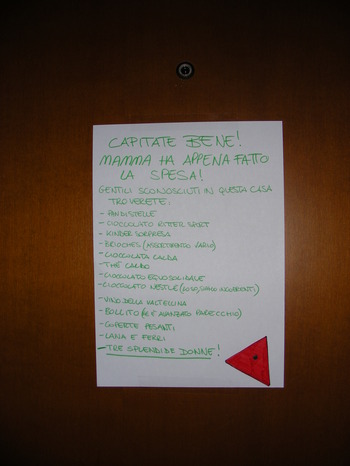 CAPITATE BENE!
MAMMA HA APPENA FATTO
LA SPESA!
GENTILI SCONOSCIUTI IN QUESTA CASA
TROVERETE:
- PANDISTELLE
- CIOCCOLATO RITTER SPORT
- KINDER SORPRESA
- BRIOCHES (ASSORTIMENTO VARIO)
- CIOCCOLATA CALDA
- THÈ CALDO
- CIOCCOLATO EQUOSOLIDALE
- CIOCCOLATO NESTLÈ
- VINO DELLA VALTELLINA
- BOLLITO (NE È AVANZATO PARECCHIO)
- COPERTE PESANTI
- LANA E FERRI
- TRE SPLENDIDE DONNE!